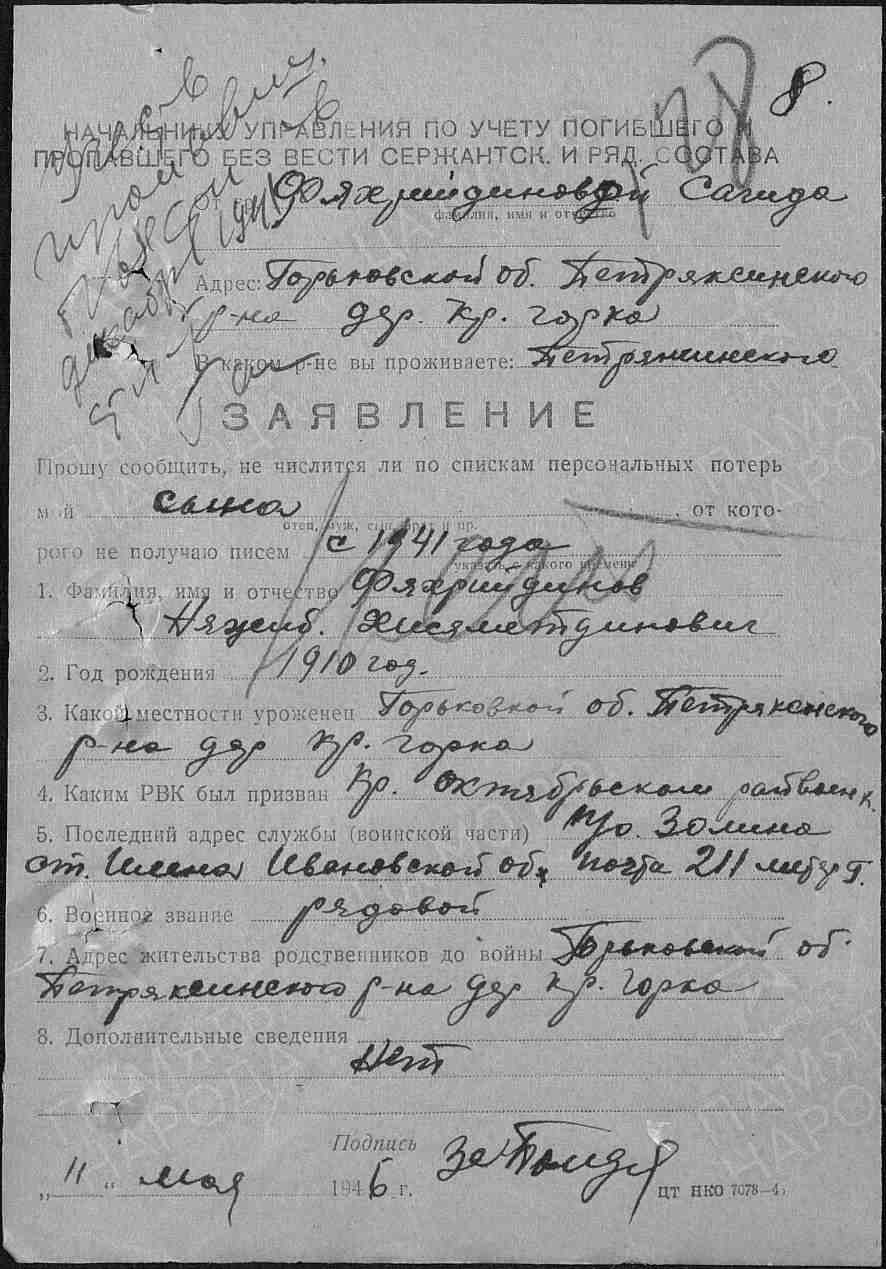 8.
НАЧАЛЬНИКУ УПРАВЛЕНИЯ ПО УЧЕТУ ПОГИБШЕГО И
ПРОПАВШЕГО БЕЗ ВЕСТИ СЕРЖАНТСК. И РЯД. СОСТАВА
От гр. Фяхрийдиновой Сагида
фамилия, имя и отчество
декабрь 1941
Адрес: Горьковской об. Петряксинского
р-на дер. Кр. горка
В каком р-не вы проживаете: Петряксинского
ЗАЯВЛЕНИЕ
Прошу сообщить, не числится ли по спискам персональных потерь
мой сына , от кото-
отец, муж, сын, брат и пр.
рого не получаю писем с 1941 года
указать с какого времени
1. Фамилия, имя и отчество Фяхрийдинов
Няжиб. Хисяметдинович
2. Год рождения 1910 год.
3. Какой местности уроженец Горьковкой об. Петряксинского
р-на дер Кр. горка
4. Каким РВК был призван Кр. Октябрьском
5. Последний адрес службы (воинской части) п/о. Золина
ст. Илена Ивановской об, почта 211 литер Г.
6. Военное звание рядовой
7. Адрес жительства родственников до войны Горьковской об.
Петряксинского р-на дер Кр. Горка
8. Дополнительные сведения
Нет
Подпись
„11“ мая 1946 г. ЦТ НКО 7078—45
ПАМЯТЬ НАРОДА